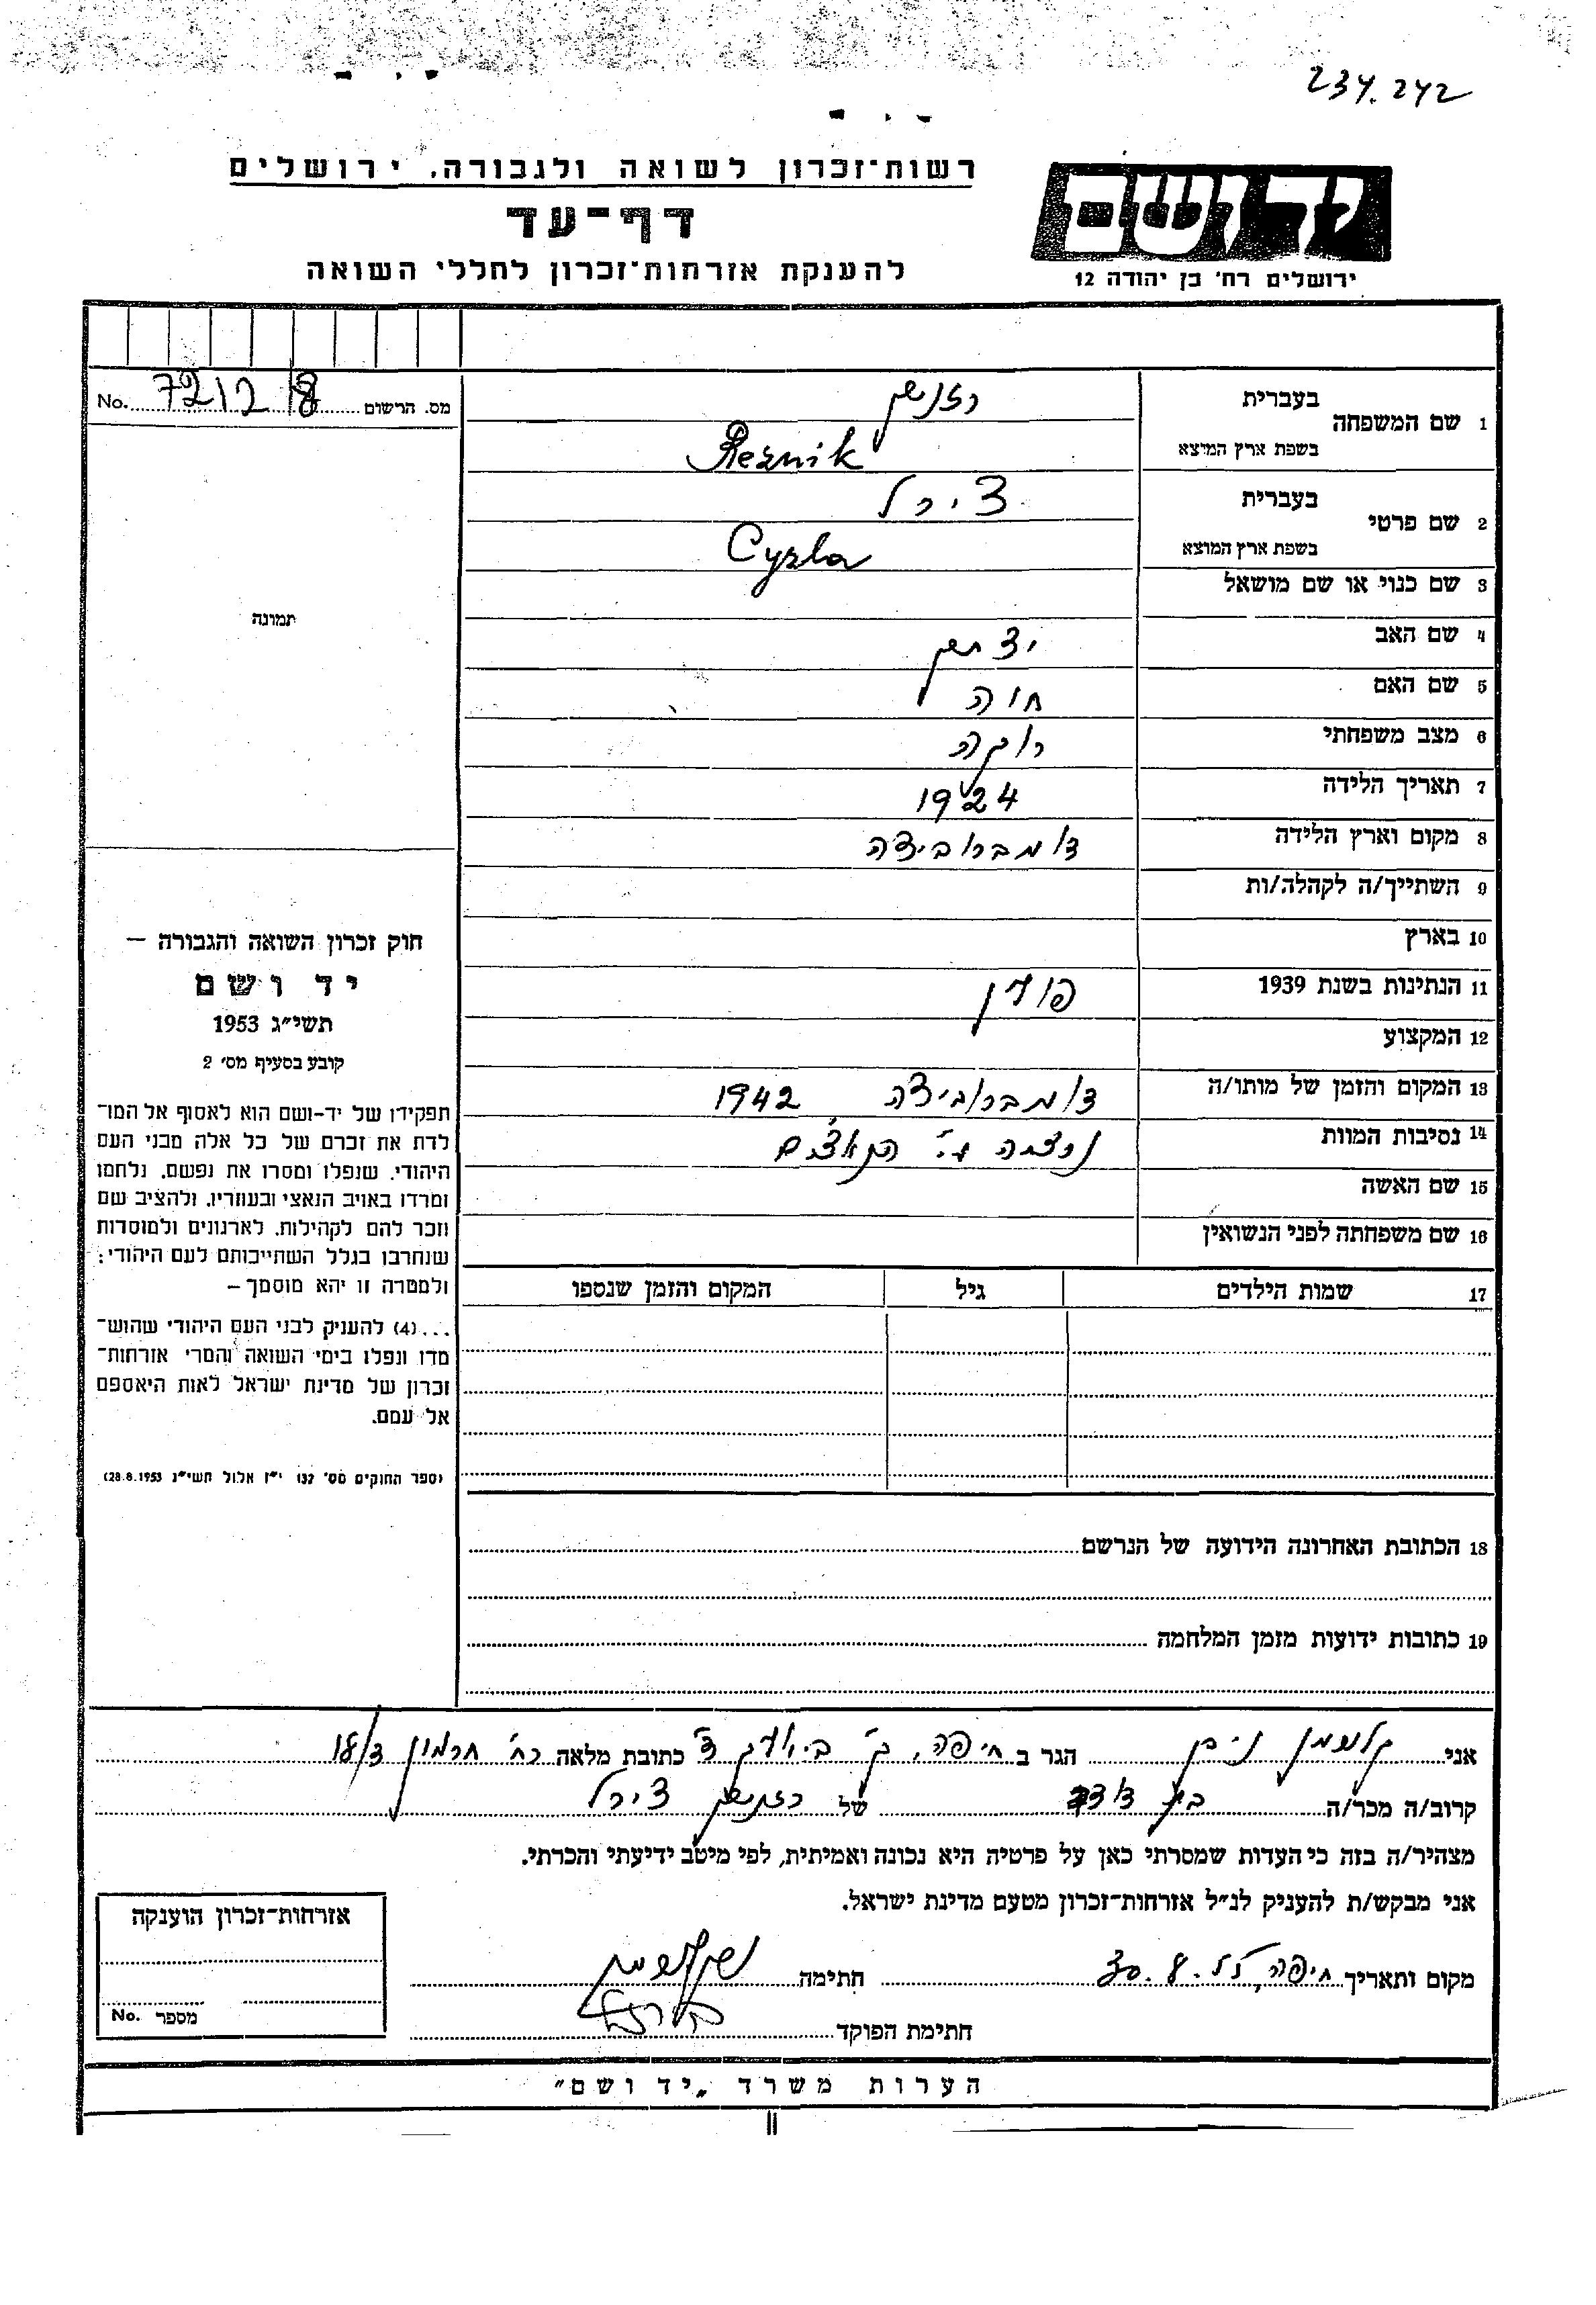 234.242
רשות־זכרון לשואה ולגבורה. ירושלים
דף־עד
להענקת אזרחות־זכרון לחללי השואה
יד ושם
ירושלים רח' בן יהודה 12
מס. הרשום No. 72128
1 שם המשפחה בעברית רזניק
בשפת ארץ המוצא Reznik
2 שם פרטי בעברית צירל
בשפת ארץ המוצא Cyrla
3 שם כנוי או שם מושאל
4 שם האב יצחק
5 שם האם חוה
6 מצב משפחתי רוקה
7 תאריך הלידה 1924
8 מקום וארץ הלידה דומברוביצה
9 השתייך/ה לקהלה/ות
10 בארץ
11 הנתינות בשנת 1939 פולין
12 המקצוע
13 המקום והזמן של מותו/ה דומברוביצה 1942
14 נסיבות המוות נרצחה ע"י הנאצים
15 שם האשה
16 שם משפחתה לפני הנשואין
17 שמות הילדים גיל המקום והזמן שנספו
18 הכתובת האחרונה הידועה של הנרשם
19 כתובות ידועות מזמן המלחמה
תמונה
חוק זכרון השואה והגבורה –
יד ושם
תשי"ג 1953
קובע בסעיף מס' 2
תפקידו של יד-ושם הוא לאסוף אל המו־
לדת את זכרם של כל אלה מבני העם
היהודי, שנפלו ומסרו את נפשם, נלחמו
ומרדו באויב הנאצי ובעוזריו, ולהציב שם
וזכר להם לקהילות, לארגונים ולמוסדות
שנחרבו בגלל השתייכותם לעם היהודי;
ולמטרה זו יהא מוסמך –
...(4) להעניק לבני העם היהודי שהוש־
מדו ונפלו בימי השואה והמרי אזרחות־
זכרון של מדינת ישראל לאות היאספם
אל עמם.
(ספר החוקים מס' 132 י"ז אלול תשי"ג 28.8.1953)
אני קלעמן הגר ב חיפה, ק' ביאליק ד' כתובת מלאה רח' חרמון
קרוב/ה מכר/ה בן דודה של רזניק צירל
מצהיר/ה בזה כי העדות שמסרתי כאן על פרטיה היא נכונה ואמיתית, לפי מיטב ידיעתי והכרתי.
אני מבקש/ת להעניק לנ"ל אזרחות־זכרון מטעם מדינת ישראל.
מקום ותאריך חיפה, 30.8.55 חתימה
חתימת הפוקד
אזרחות־זכרון הוענקה
מספר No.
הערות משרד „יד ושם"